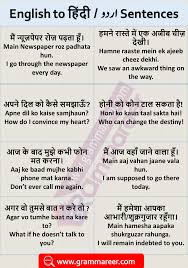 English to हिंदी / اردو Sentences
मैं न्यूज़पेपर रोज़ पढ़ता हूँ।
Main Newspaper roz padhata hun.
I go through the newspaper every day.
हमने रास्ते में एक अजीब चीज़ देखी।
Hamne raaste mein ek ajeeb cheez dekhi.
We saw an awkward thing on the way.
अपने दिल को कैसे समझाऊँ?
Apne dil ko kaise samjhaun?
How do I convince my heart?
होनी को कौन टाल सकता है!
Honi ko kaun taal sakta hai!
Who can change the destiny!
आज के बाद मुझे कभी फोन मत करना।
Aaj ke baad mujhe kabhi phone mat karna.
Don't ever call me again.
मैं आज वहाँ जाने वाला हूँ।
Main aaj vahan jaane vala hun.
I am supposed to go there today.
अगर वो तुमसे बात न करे तो ?
Agar vo tumhe baat na kare to ?
What if he doesn't talk to you?
मैं हमेशा आपका आभारी/शुक्रगुज़ार रहूँगा।
Main hamesha aapka shukrguzar rahunga.
I will remain indebted to you.
www.grammareer.com